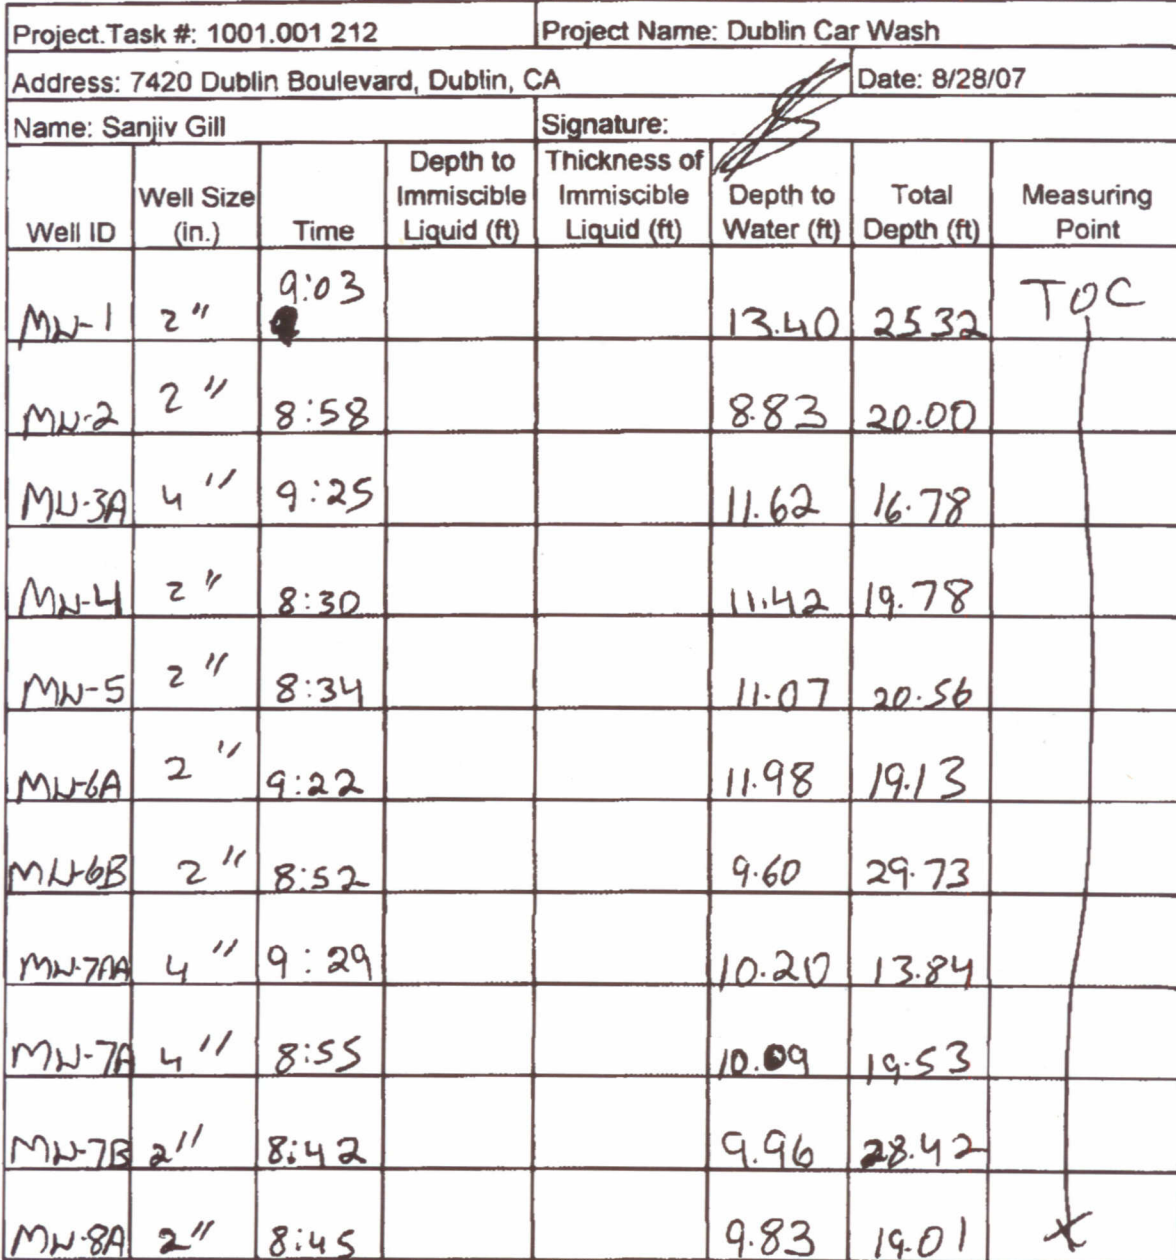 Project.Task #: 1001.001 212 Project Name: Dublin Car Wash
Address: 7420 Dublin Boulevard, Dublin, CA Date: 8/28/07
Name: Sanjiv Gill Signature:
Well ID Well Size (in.) Time Depth to Immiscible Liquid (ft) Thickness of Immiscible Liquid (ft) Depth to Water (ft) Total Depth (ft) Measuring Point
MW-1 2" 9:03 13.40 25.32 TOC
MW-2 2" 8:58 8.83 20.00
MW-3A 4" 9:25 11.62 16.78
MW-4 2" 8:30 11.42 19.78
MW-5 2" 8:34 11.07 20.56
MW-6A 2" 9:22 11.98 19.13
MW-6B 2" 8:52 9.60 29.73
MW-7AA 4" 9:29 10.20 13.84
MW-7A 4" 8:55 10.09 19.53
MW-7B 2" 8:42 9.96 28.42
MW-8A 2" 8:45 9.83 19.01